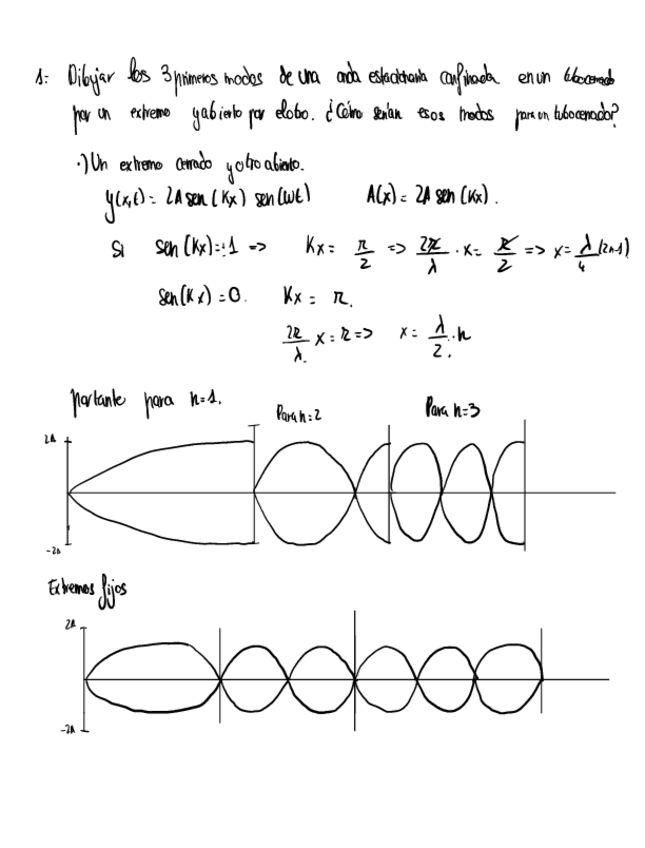 1: Dibujar los 3 primeros modos de una onda estacionaria confinada en un tubo cerrado
por un extremo y abierto por el otro. ¿Cómo serían esos modos para un tubo cerrado?
·) Un extremo cerrado y otro abierto.
y(x,t) = 2A sen(Kx) sen(ωt) A(x) = 2A sen(Kx).
Si sen(Kx) = ±1 => Kx = π/2 => 2π/λ · x = π/2 => x = λ/4 (2n-1)
sen(Kx) = 0. Kx = π.
2π/λ x = π => x = λ/2 · n
Portante para n=1. Para n=2 Para n=3
2A
-2A
Extremos fijos
2A
-2A